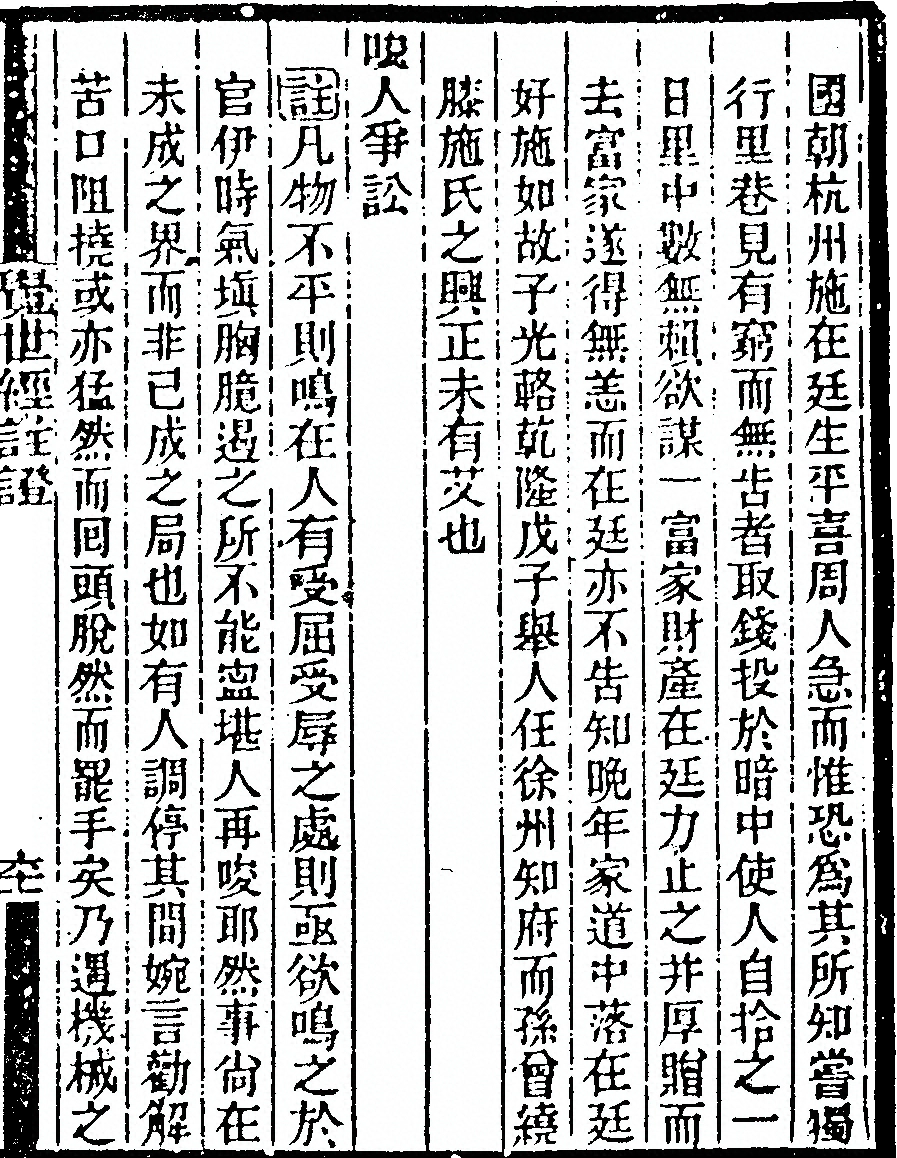 國朝杭州施在廷生平喜周人急而惟恐爲其所知嘗獨
行里巷見有窮而無告者取錢投於暗中使人自拾之一
日里中數無賴欲謀一富家財產在廷力止之并厚贈而
去富家遂得無恙而在廷亦不告知晚年家道中落在廷
好施如故子光輅乾隆戊子舉人任徐州知府而孫曾繞
膝施氏之興正未有艾也
唆人爭訟
註凡物不平則鳴在人有受屈受辱之處則亟欲鳴之於
官伊時氣塡胸臆遏之所不能寍堪人再唆耶然事尙在
未成之界而非已成之局也如有人調停其間婉言勸解
苦口阻撓或亦猛然而囘頭脫然而罷手矣乃遇機械之
覺世經註證